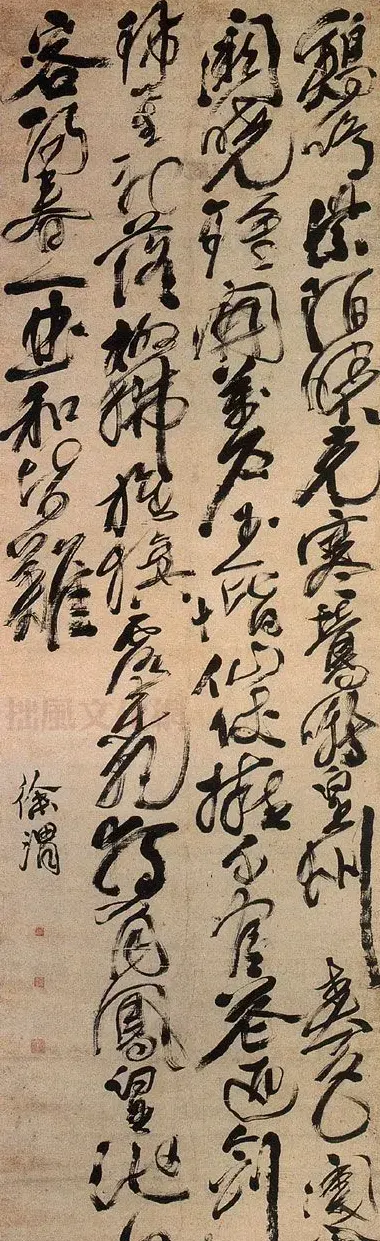 鷄鳴紫陌曙光寒鶯囀皇州春色闌
闕曉鐘開萬戶玉階仙仗擁千官花迎劍
珮星初落柳拂旌旗露未乾獨有鳳皇池
客陽春一曲和皆難
徐渭
拙風文化網